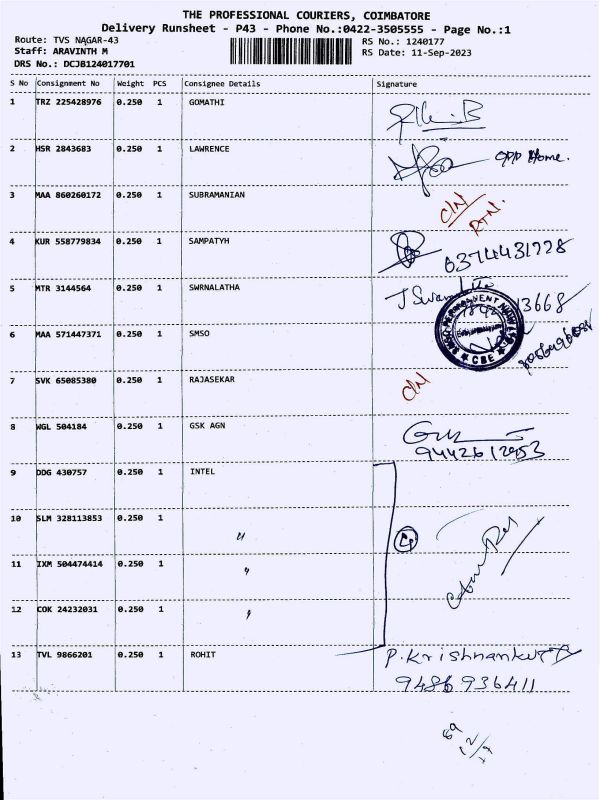 THE PROFESSIONAL COURIERS, COIMBATORE
Delivery Runsheet - P43 - Phone No.:0422-3505555 - Page No.:1
Route: TVS NAGAR-43
Staff: ARAVINTH M
DRS No.: DCJB124017701
RS No.: 1240177
RS Date: 11-Sep-2023
S No Consignment No Weight PCS Consignee Details Signature
1 TRZ 225428976 0.250 1 GOMATHI
2 HSR 2843683 0.250 1 LAWRENCE opp Home.
3 MAA 860260172 0.250 1 SUBRAMANIAN C/N RTN.
4 KUR 558779834 0.250 1 SAMPATYH 6374431728
5 MTR 3144564 0.250 1 SWRNALATHA 13668
6 MAA 571447371 0.250 1 SMSO CBE
7 SVK 65085380 0.250 1 RAJASEKAR C/N
8 WGL 504184 0.250 1 GSK AGN
9442612953
9 DDG 430757 0.250 1 INTEL
10 SLM 328113853 0.250 1 "
4
11 IXM 504474414 0.250 1 "
12 COK 24232031 0.250 1 "
13 TVL 9866201 0.250 1 ROHIT P.Krishnankutty
9486936411